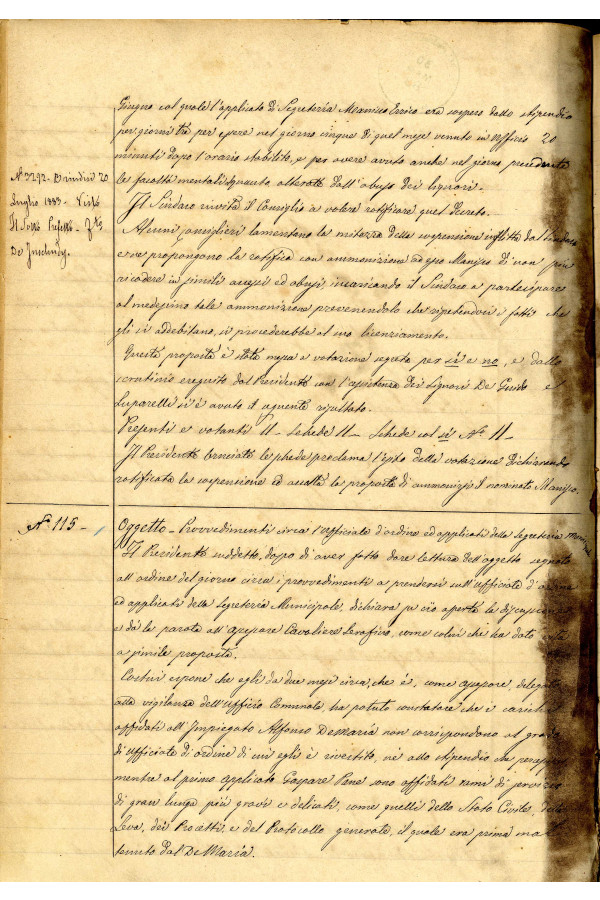 Giugno col quale l'applicato di Segreteria Manisco Errico era sospeso dallo stipendio
per giorni tre per essere nel giorno cinque di quel mese venuto in Ufficio 20
minuti dopo l'orario stabilito, e per avere avuto anche nel giorno precedente
le facoltà mentali alquanto alterate dall'abuso dei liquori.
Il Sindaco invita il Consiglio a volere ratificare quel decreto.
Alcuni consiglieri lamentano la mitezza della sospensione inflitta dal Sindaco
e ne propongono la ratifica con ammonizione ad esso Manisco di non più
ricadere in simili eccessi ed abusi, incaricando il Sindaco a partecipare
al medesimo tale ammonizione prevenendolo che ripetendosi i fatti che
gli si addebitano, si procederebbe al suo licenziamento.
Questa proposta è stata messa a votazione segreta per sì e no, e dallo
scrutinio eseguito dal Presidente con l'assistenza dei Signori De Guido e
Luparelli si è avuto il seguente risultato.
Presenti e votanti 11 - Schede 11 - Schede col sì N.º 11 -
Il Presidente bruciate le schede proclama l'esito della votazione dichiarando
ratificata la sospensione ed accolta la proposta di ammonizione il nominato Manisco.
N. 3292. Brindisi 20
Luglio 1889 - Visto
Il Sotto Prefetto - fto
De
N.º 115 -
Oggetto - Provvedimenti circa l'Ufficiale d'ordine ed applicati della Segreteria Municipale
Il Presidente suddetto, dopo di aver fatto dare lettura dell'oggetto segnato
all'ordine del giorno circa i provvedimenti a prendersi sull'Ufficiale d'ordine
ed applicati della Segreteria Municipale, dichiara su ciò aperta la discussione
e dà la parola all'Assessore Cavaliere Serafino, come colui che ha dato
a simile proposta.
Costui espone che egli da due mesi circa, che è, come Assessore, delegato
alla vigilanza dell'Ufficio Comunale, ha potuto constatare che i carichi
affidati all'Impiegato Alfonso DeMaria non corrispondono al grado
di Ufficiale di ordine di cui egli è rivestito, nè allo stipendio che percepisce
mentre al primo Applicato Gaspare Pane sono affidati rami di servizio
di gran lunga più gravi e delicati, come quelli dello Stato Civile, della
Leva, dei Proietti, e del Protocollo generale, il quale era prima
tenuto dal DeMaria.